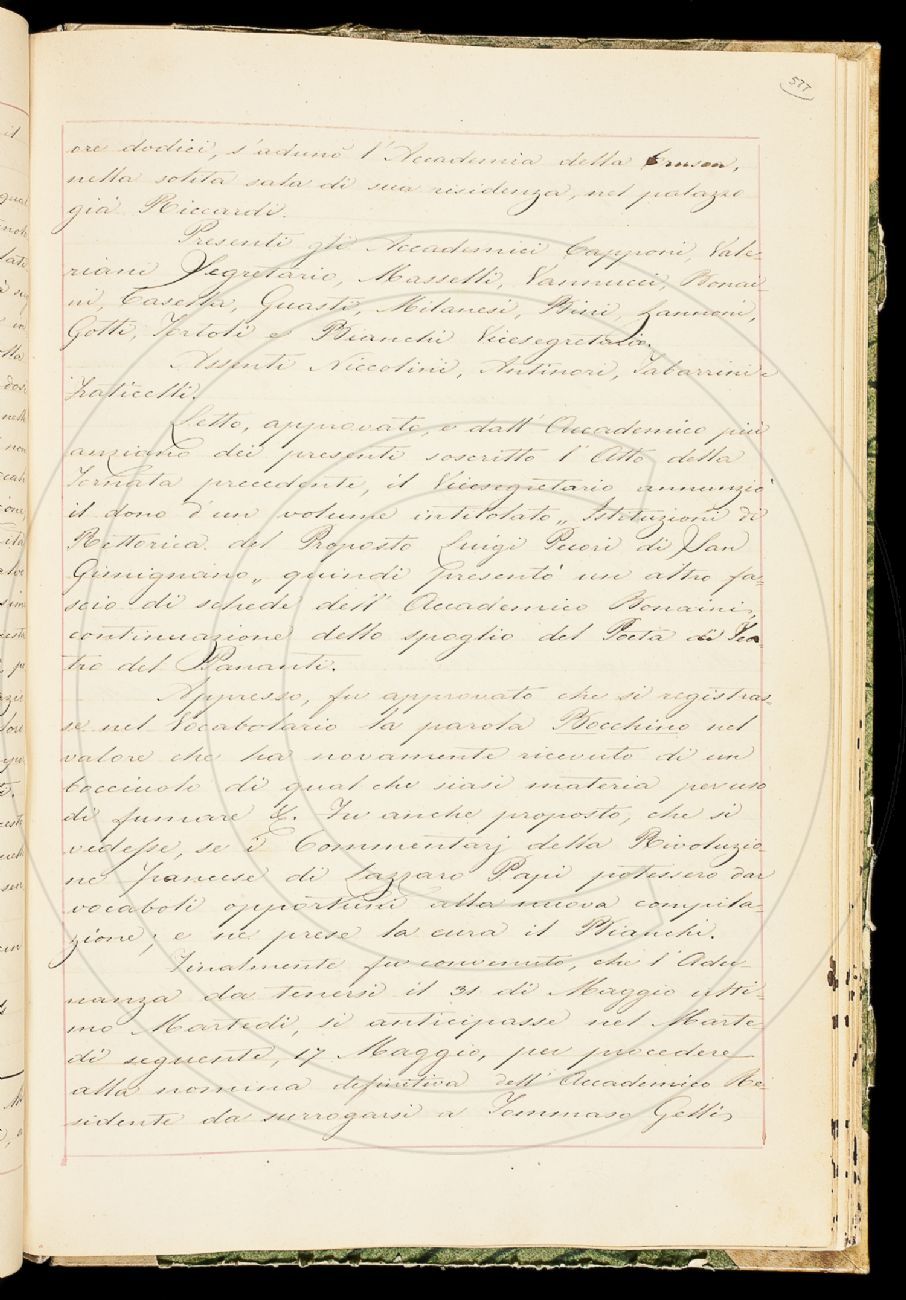 577
ore dodici, s'adunò l'Accademia della Crusca,
nella solita sala di sua residenza, nel palazzo
già Riccardi.
Presenti gli Accademici Capponi, Vale-
riani Segretario, Masselli, Vannucci, Bonai-
ni, Casella, Guasti, Milanesi, Bini, Zannoni,
Gotti, Tortoli e Bianchi Vicesegretario.
Assenti Niccolini, Antinori, Tabarrini e
Fraticelli.
Letto, approvato, e dall'Accademico più
anziano dei presenti soscritto l'Atto della
Tornata precedente, il Vicesegretario annunziò
il dono d'un volume intitolato „ Istituzioni di
Rettorica del Proposto Luigi Pecori di San
Gimignano „ quindi presentò un altro fa-
scio di schede dell'Accademico Bonaini,
continuazione dello spoglio del Poeta di Tea-
tro del Pananti.
Appresso, fu approvato che si registras-
se nel Vocabolario la parola Bocchino nel
valore che ha novamente ricevuto di un
bocciuolo di qual che siasi materia per uso
di fumare &. Fu anche proposto, che si
vedesse, se i Commentarj della Rivoluzio-
ne francese di Lazzaro Papi potessero dar
vocaboli opportuni alla nuova compila-
zione; e ne prese la cura il Bianchi.
Finalmente fu convenuto, che l'Adu-
nanza da tenersi il 31 di Maggio ulti-
mo Martedì, si anticipasse nel Marte-
dì seguente, 17 Maggio, per procedere
alla nomina definitiva dell'Accademico Re-
sidente da surrogarsi a Tommaso Gelli,